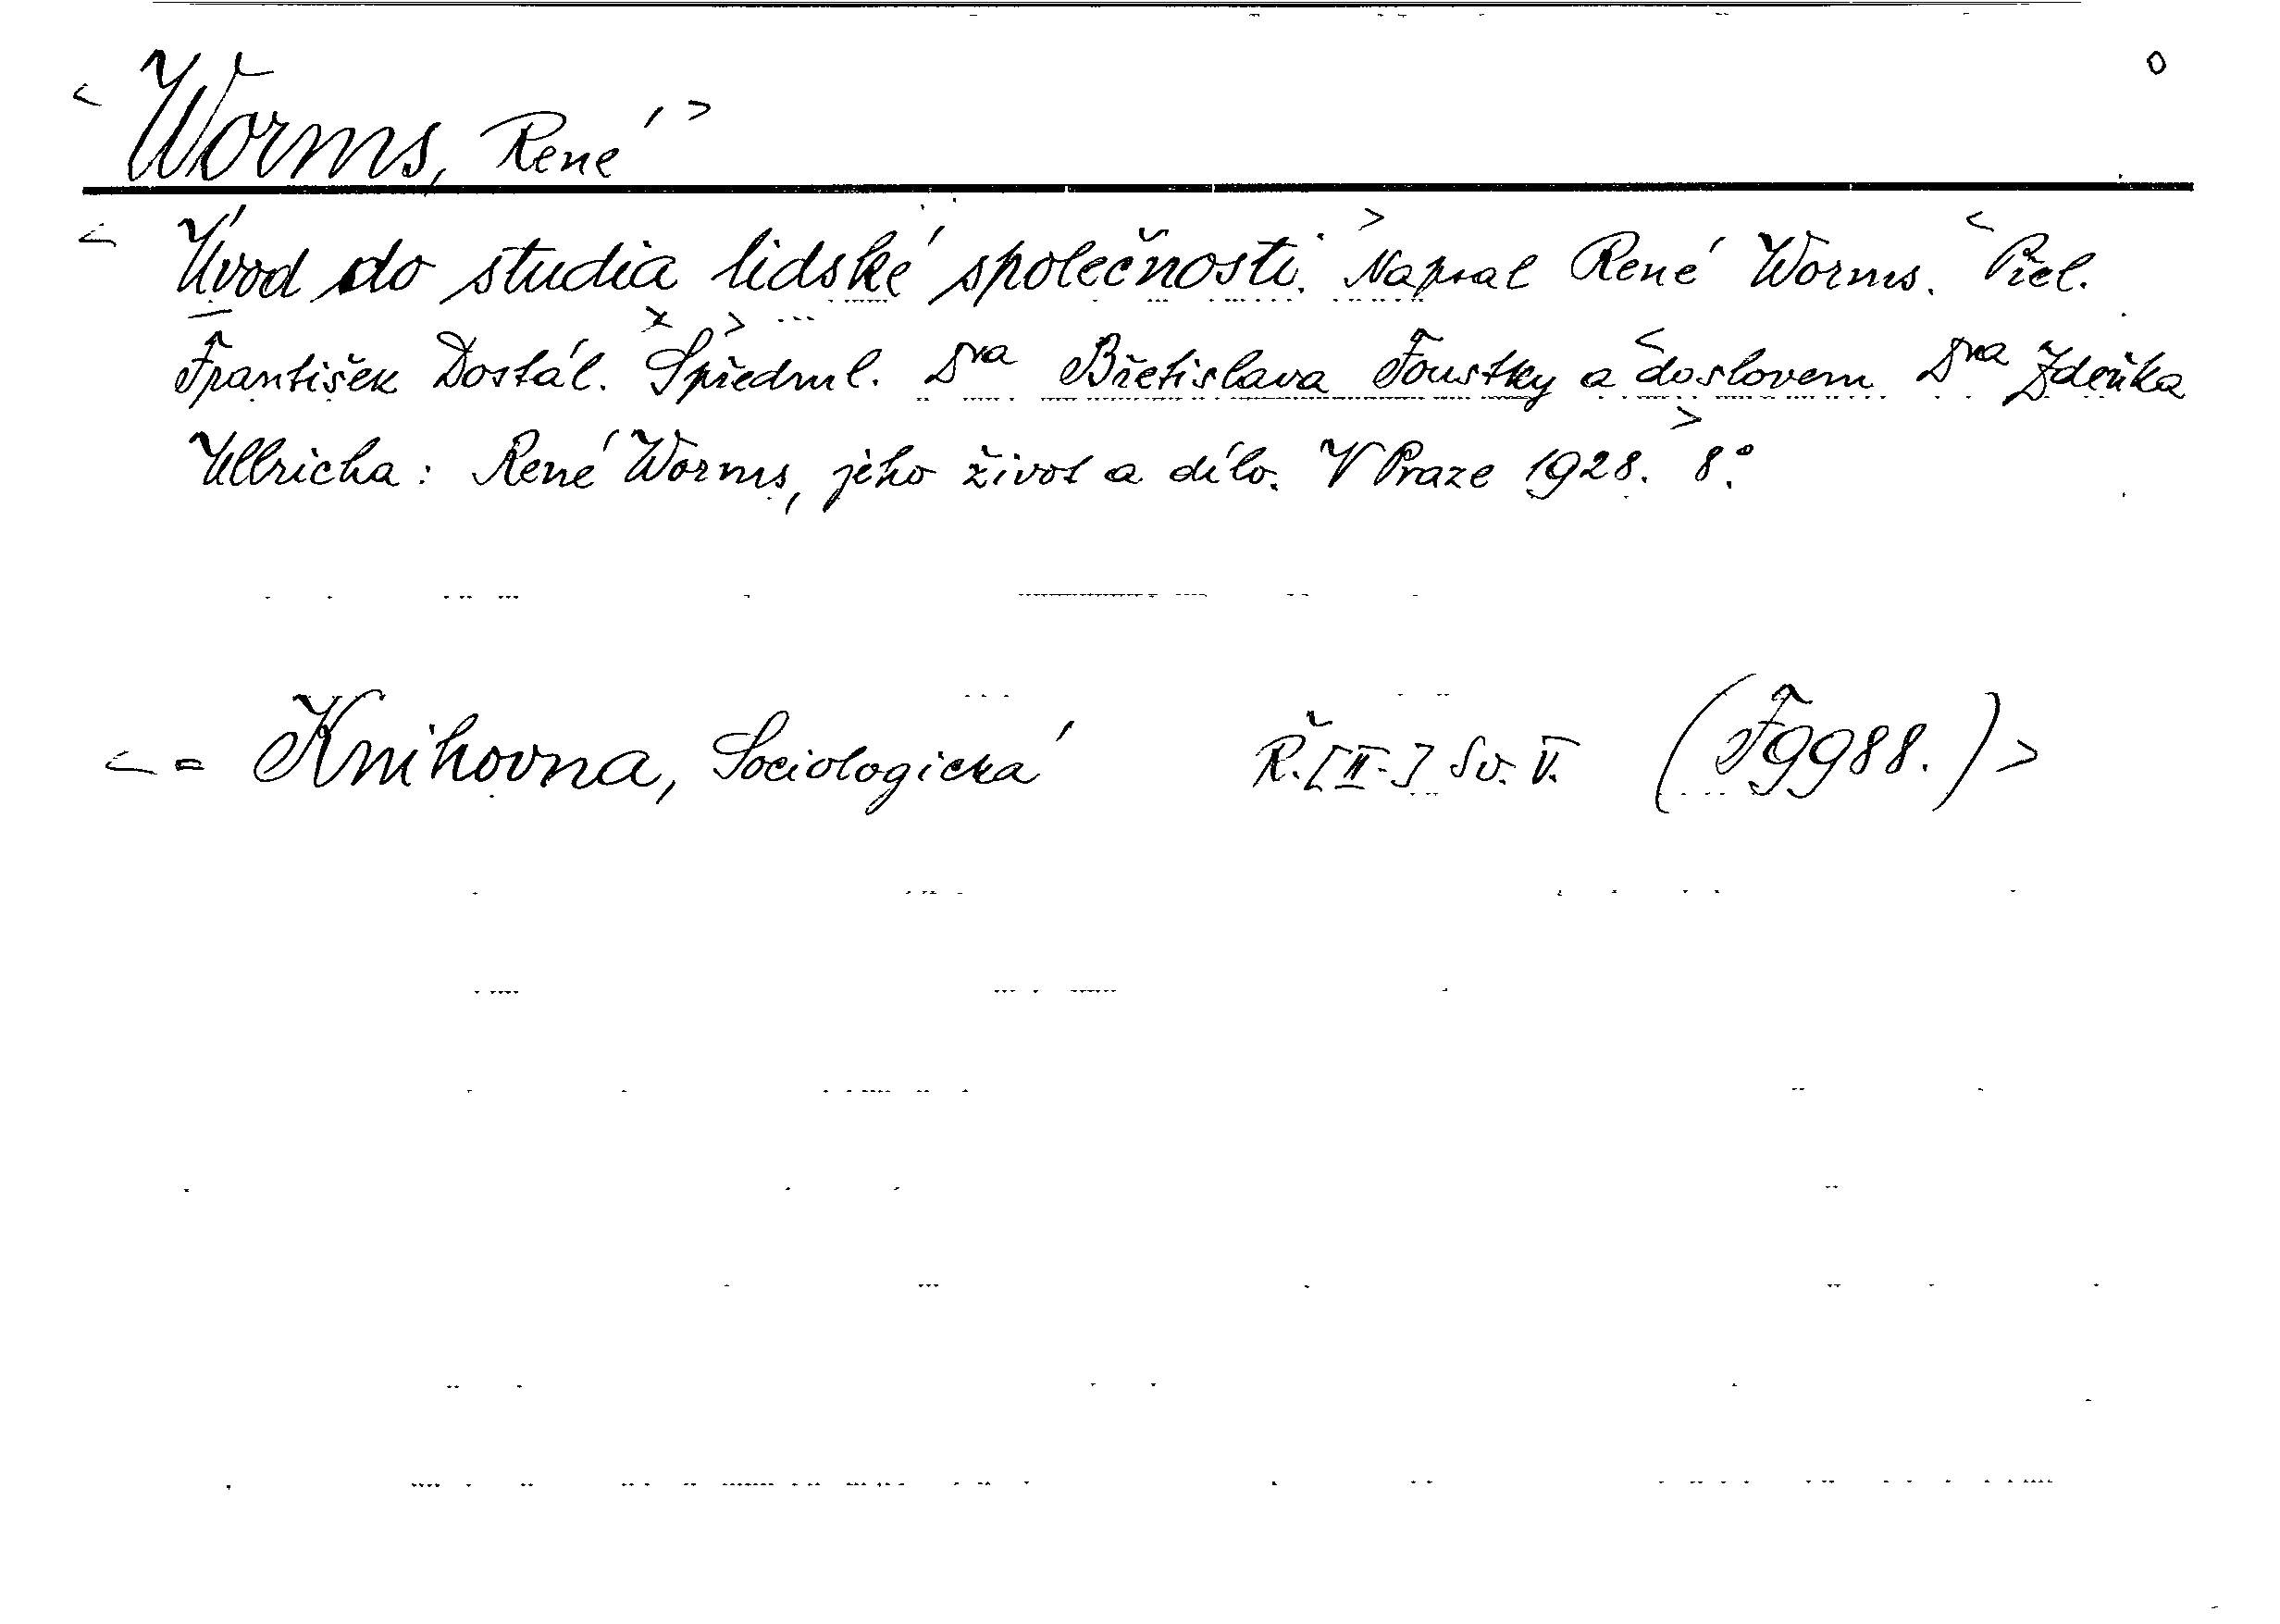 < Worms, René >
< Úvod do studia lidské společnosti. > Napsal René Worms. < Přel.
František Dostál. > S předml. Dra Břetislava Foustky a < doslovem Dra Zdeňka
Ullricha: René Worms, jeho život a dílo. V Praze 1928. > 8°.
< = Knihovna, Sociologická Ř. [II.] Sv. V. (F 9988.) >